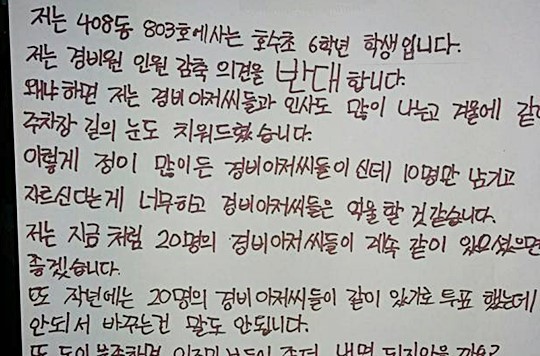 저는 408동 803호에사는 호수초 6학년 학생입니다.
저는 경비원 인원 감축 의견을 반대합니다.
왜냐하면 저는 경비아저씨들과 인사도 많이 나누고 겨울에 같이
주차장 길의 눈도 치워드렸습니다.
이렇게 정이 많이든 경비아저씨들이신데 10명만 남기고
자르신다는게 너무하고 경비아저씨들은 억울할 것같습니다.
저는 지금처럼 20명의 경비아저씨들이 계속 같이 있으셨으면
좋겠습니다.
또 작년에는 20명의 경비아저씨들이 같이 있기로 투표 했는데
안되서 바꾸는건 말도 안됩니다.
또 돈이 부족하면